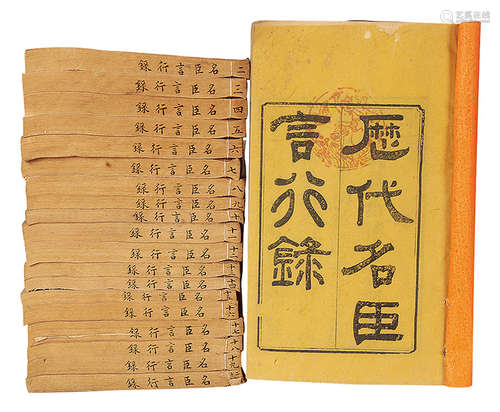 厯代名臣
言行錄
二 名臣言行錄
三 名臣言行錄
四 名臣言行錄
五 名臣言行錄
六 名臣言行錄
七 名臣言行錄
八 名臣言行錄
九 名臣言行錄
十 名臣言行錄
十一 名臣言行錄
十二 名臣言行錄
十三 名臣言行錄
名臣言行錄
名臣言行錄
十六 名臣言行錄
十七 名臣言行錄
十八 名臣言行錄
十九 名臣言行錄
名臣言行錄